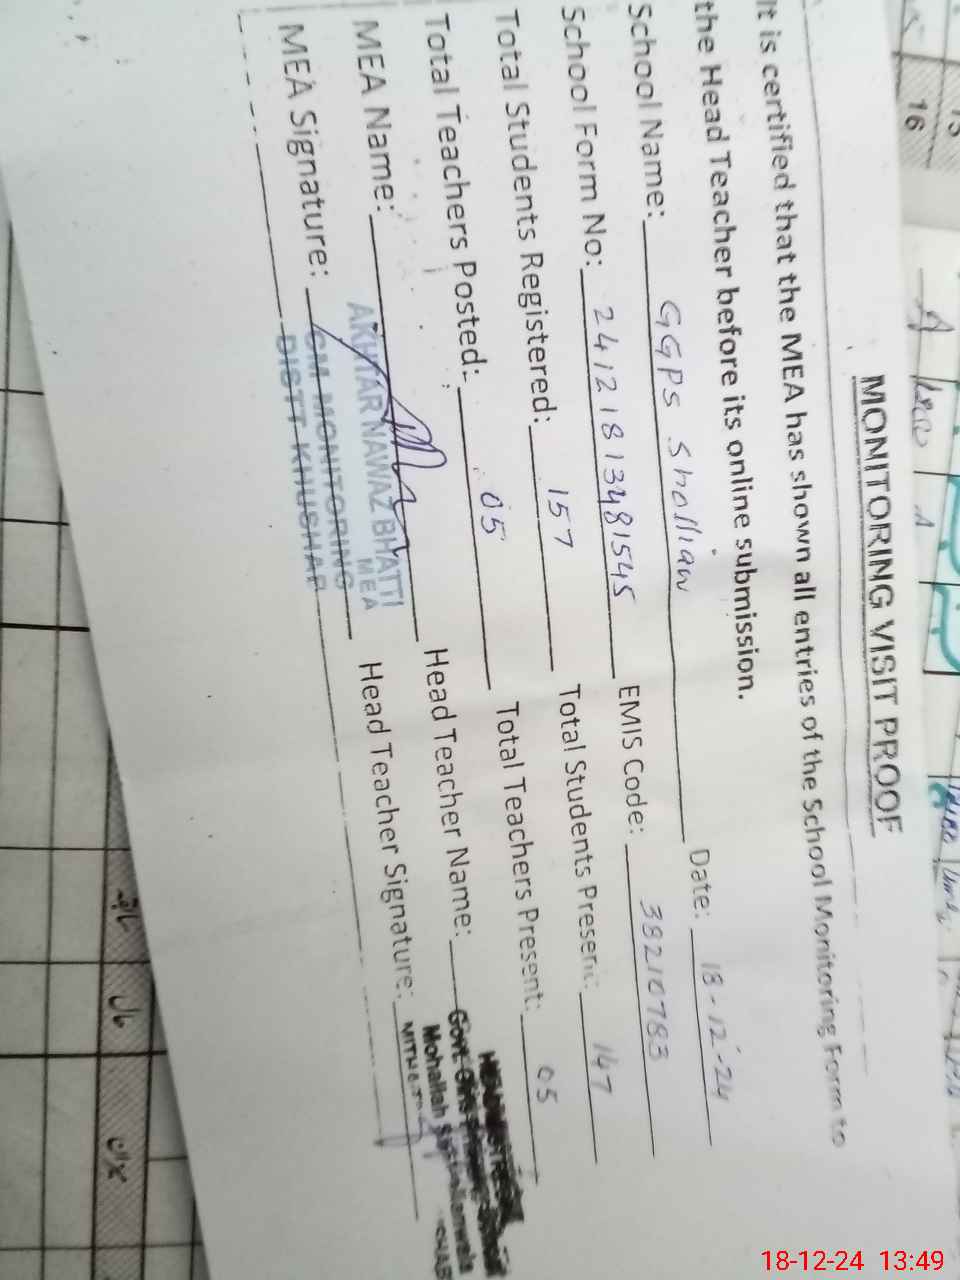 MONITORING VISIT PROOF
It is certified that the MEA has shown all entries of the School Monitoring Form to
the Head Teacher before its online submission.
School Name: GGPS Sholliaw Date: 18-12-24
School Form No: 241218133481545 EMIS Code: 38210783
Total Students Registered: 157 Total Students Present: 147
Total Teachers Posted: 05 Total Teachers Present: 05
MEA Name: AKHTAR NAWAZ BHATTI Head Teacher Name: Govt. Girls
MEA
Mohallah
MEA Signature: CM MONITORING Head Teacher Signature:
DISTT KHUSHAB
15
16
18-12-24 13:49